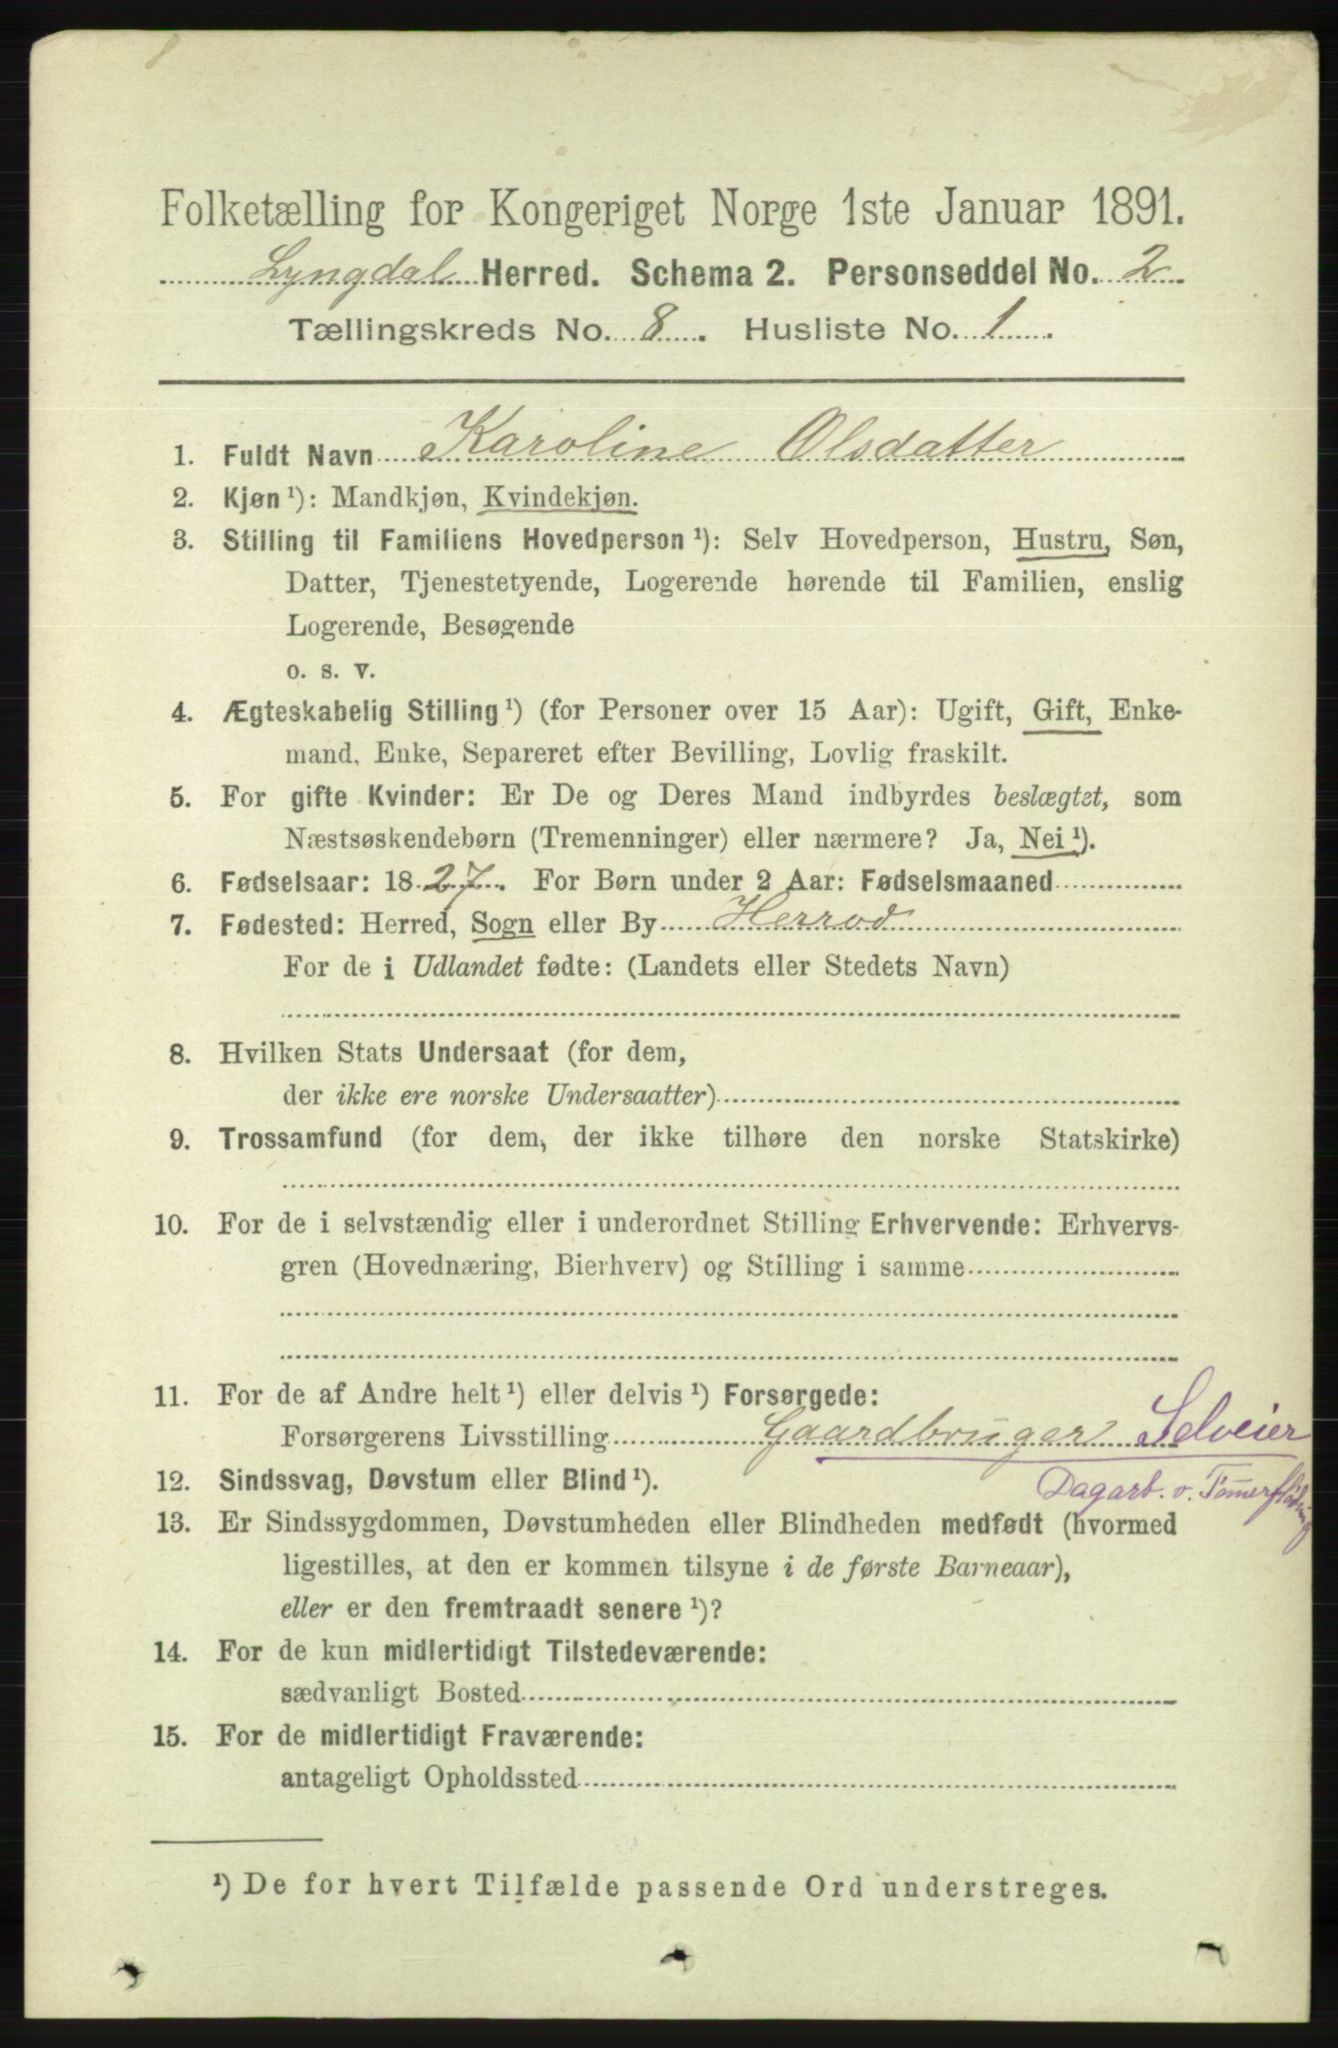 Folketælling for Kongeriget Norge 1ste Januar 1891.
Lyngdal Herred. Schema 2. Personseddel No. 2
Tællingskreds No. 8. Husliste No. 1.
1. Fuldt Navn Karoline Olsdatter
2. Kjøn ¹): Mandkjøn, Kvindekjøn.
3. Stilling til Familiens Hovedperson ¹): Selv Hovedperson, Hustru, Søn,
Datter, Tjenestetyende, Logerende hørende til Familien, enslig
Logerende, Besøgende
o. s. v.
4. Ægteskabelig Stilling ¹) (for Personer over 15 Aar): Ugift, Gift, Enke-
mand, Enke, Separeret efter Bevilling, Lovlig fraskilt.
5. For gifte Kvinder: Er De og Deres Mand indbyrdes beslægtet, som
Næstsøskendebørn (Tremenninger) eller nærmere? Ja, Nei ¹).
6. Fødselsaar: 1827. For Børn under 2 Aar: Fødselsmaaned
7. Fødested: Herred, Sogn eller By Herrod
For de i Udlandet fødte: (Landets eller Stedets Navn)
8. Hvilken Stats Undersaat (for dem,
der ikke ere norske Undersaatter)
9. Trossamfund (for dem, der ikke tilhøre den norske Statskirke)
10. For de i selvstændig eller i underordnet Stilling Erhvervende: Erhvervs-
gren (Hovednæring, Bierhverv) og Stilling i samme
11. For de af Andre helt ¹) eller delvis ¹) Forsørgede:
Forsørgerens Livsstilling Gaardbruger Selveier
Dagarb. v. Tømmerflødning
12. Sindssvag, Døvstum eller Blind ¹).
13. Er Sindssygdommen, Døvstumheden eller Blindheden medfødt (hvormed
ligestilles, at den er kommen tilsyne i de første Barneaar),
eller er den fremtraadt senere ¹)?
14. For de kun midlertidigt Tilstedeværende:
sædvanligt Bosted
15. For de midlertidigt Fraværende:
antageligt Opholdssted
¹) De for hvert Tilfælde passende Ord understreges.